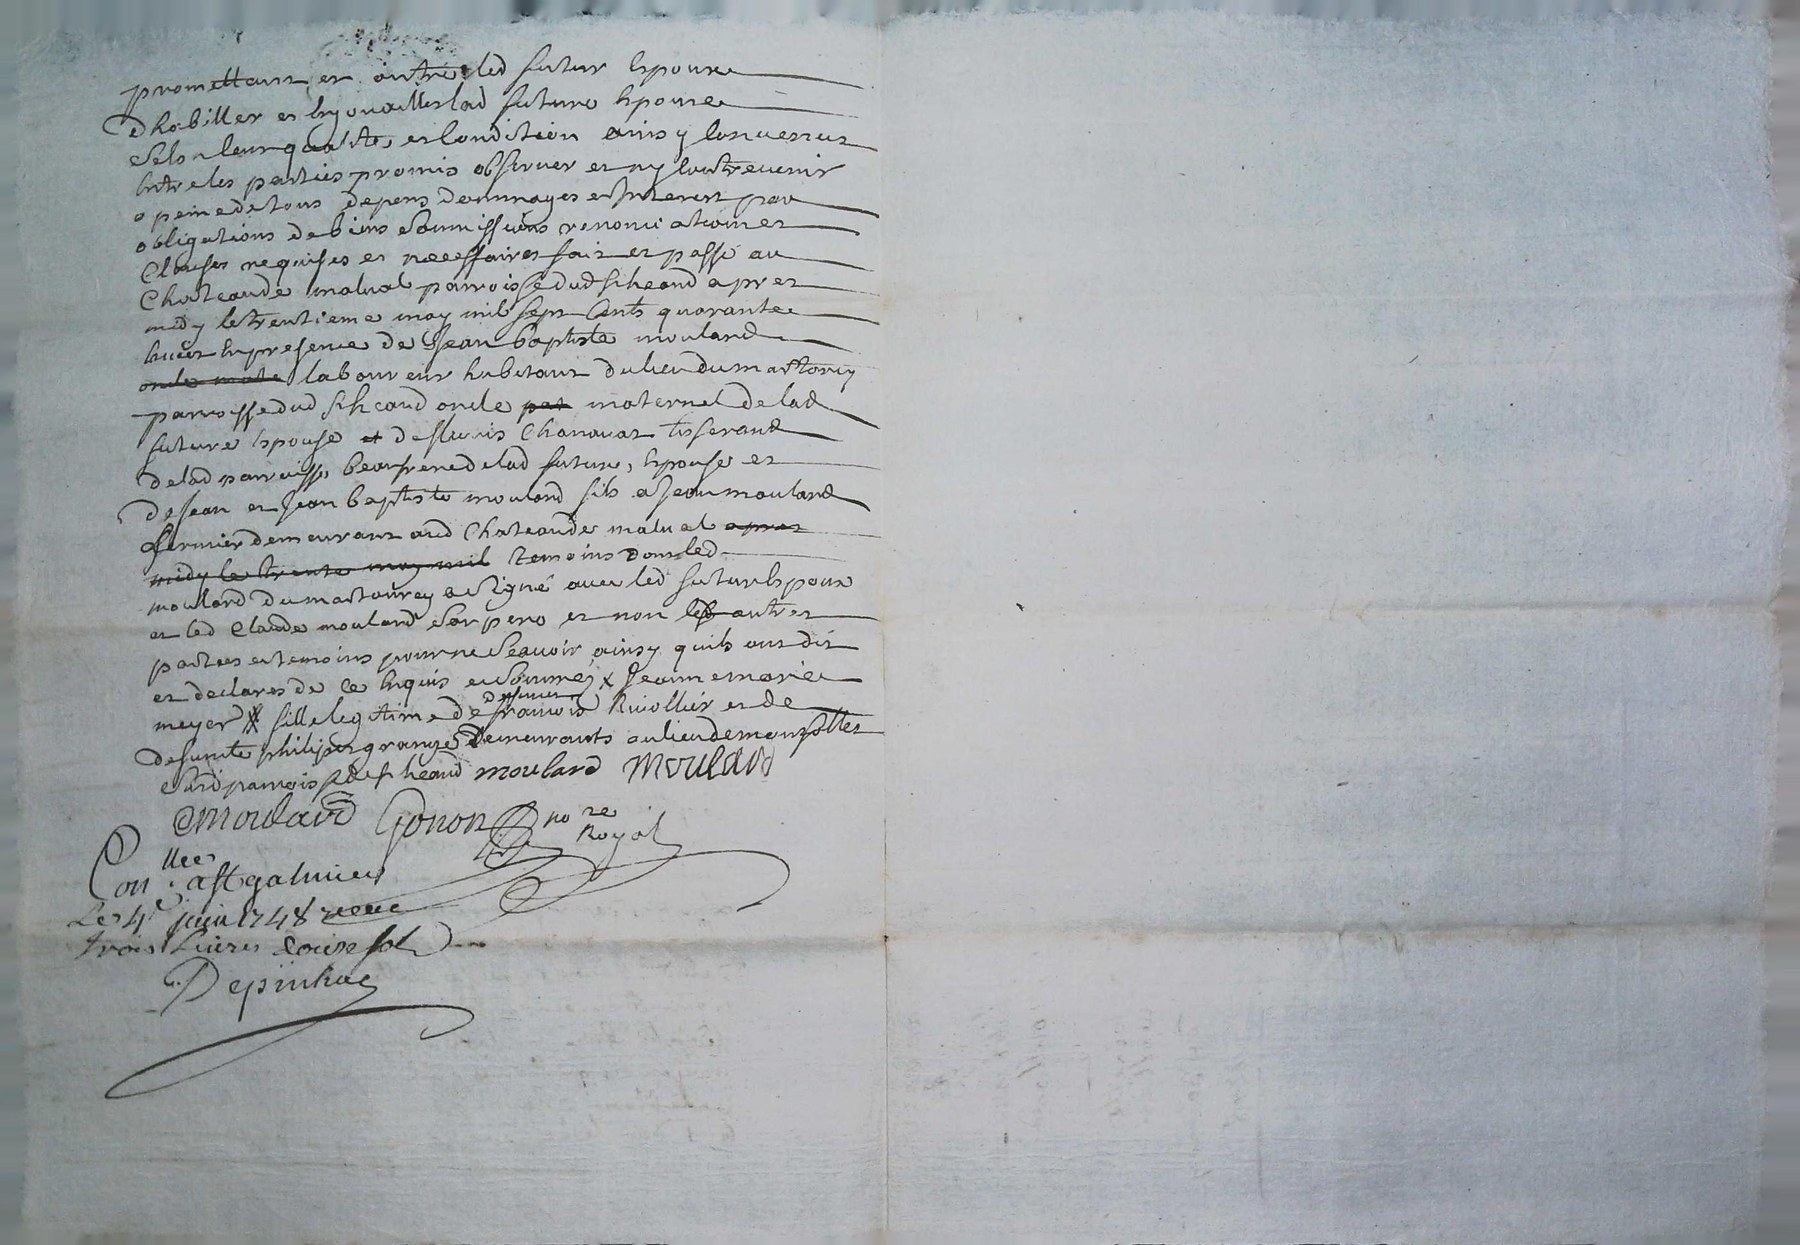 promettant en outre led futur Epoux
dhabiller et Enjouailler lad future Epouse
selon leur qualité et Condition ainsy Convenus
Entre les parties promis observer et ny Contrevenir
a peine de tous depens dommages et Interest par
obligations de biens soumissions renonciations et
Clauses requises et necessaires fait et passé au
Chateau de malval parroisse dud st heand apres
midy le trentieme may mil sept Cents quarante
huict En presence de Jean baptiste moulard
oncle mate laboureur habitant du lieu du martorey
parroisse dud st heand oncle pat maternel de lad
future Epouse et de fleuris Chanavat tisserand
de lad parroisse beaufrere de lad future Epouse et
de Jean et Jean baptiste moulard fils a Jean moulard
fermier demeurant aud Chateau de malval apres
midy le trente may mil temoins dont led
moulard du martourey a signé avec led futur Epoux
et led Claude moulard son pere et non les autres
parties et temoins pour ne scavoir ainsy quils ont dit
et declares de ce Enquis et sommés x Jeanne marie
meyer fille legitime de defunt francois Rivollier et de
defunte philipes grange demeurants au lieu de
surd parroisse de st heand moulard moulard
moulard Gonon nore
Royal
Conllee a st galmier
Le 4e juin 1748 receu
trois Livres douze sol
Depinhac